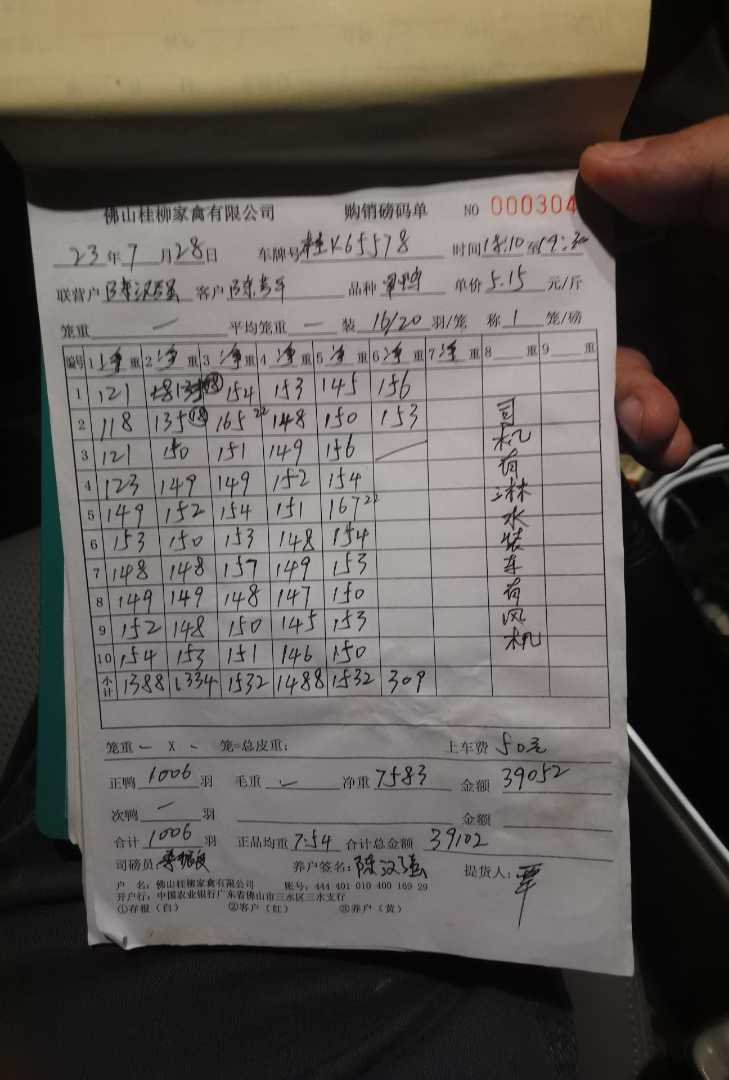 佛山桂柳家禽有限公司 购销磅码单 NO 000304
23年7月28日 车牌号桂K65578 时间18:10至19:30
联营户 陈汉强 客户 陈 品种 单价5.15元/斤
笼重 — 平均笼重 — 装 16/20 羽/笼 称 1 笼/磅
编号 1净重 2净重 3净重 4净重 5净重 6净重 7净重 8 重 9 重
1 121 135⑱ 154 153 145 156
2 118 135⑱ 165 22 148 150 153
3 121 150 151 149 156 —
4 123 149 149 152 154
5 149 152 154 151 167 22
6 153 150 153 148 154
7 148 148 157 149 153
8 149 149 148 147 150
9 152 148 150 145 153
10 154 153 151 146 150
司机有淋水装车有风机
小计 1388 1334 1532 1488 1532 309
笼重 — X - 笼=总皮重: 上车费 50元
正鸭 1006 羽 毛重 净重 7583 金额 39052
次鸭 — 羽 金额
合计 1006 羽 正品均重 7.54 合计总金额 39102
司磅员 养户签名: 陈汉强 提货人: 覃
户 名: 佛山桂柳家禽有限公司 账号: 444 401 010 400 169 29
开户行: 中国农业银行广东省佛山市三水区三水支行
①存根(白) ②客户(红) ③养户(黄)